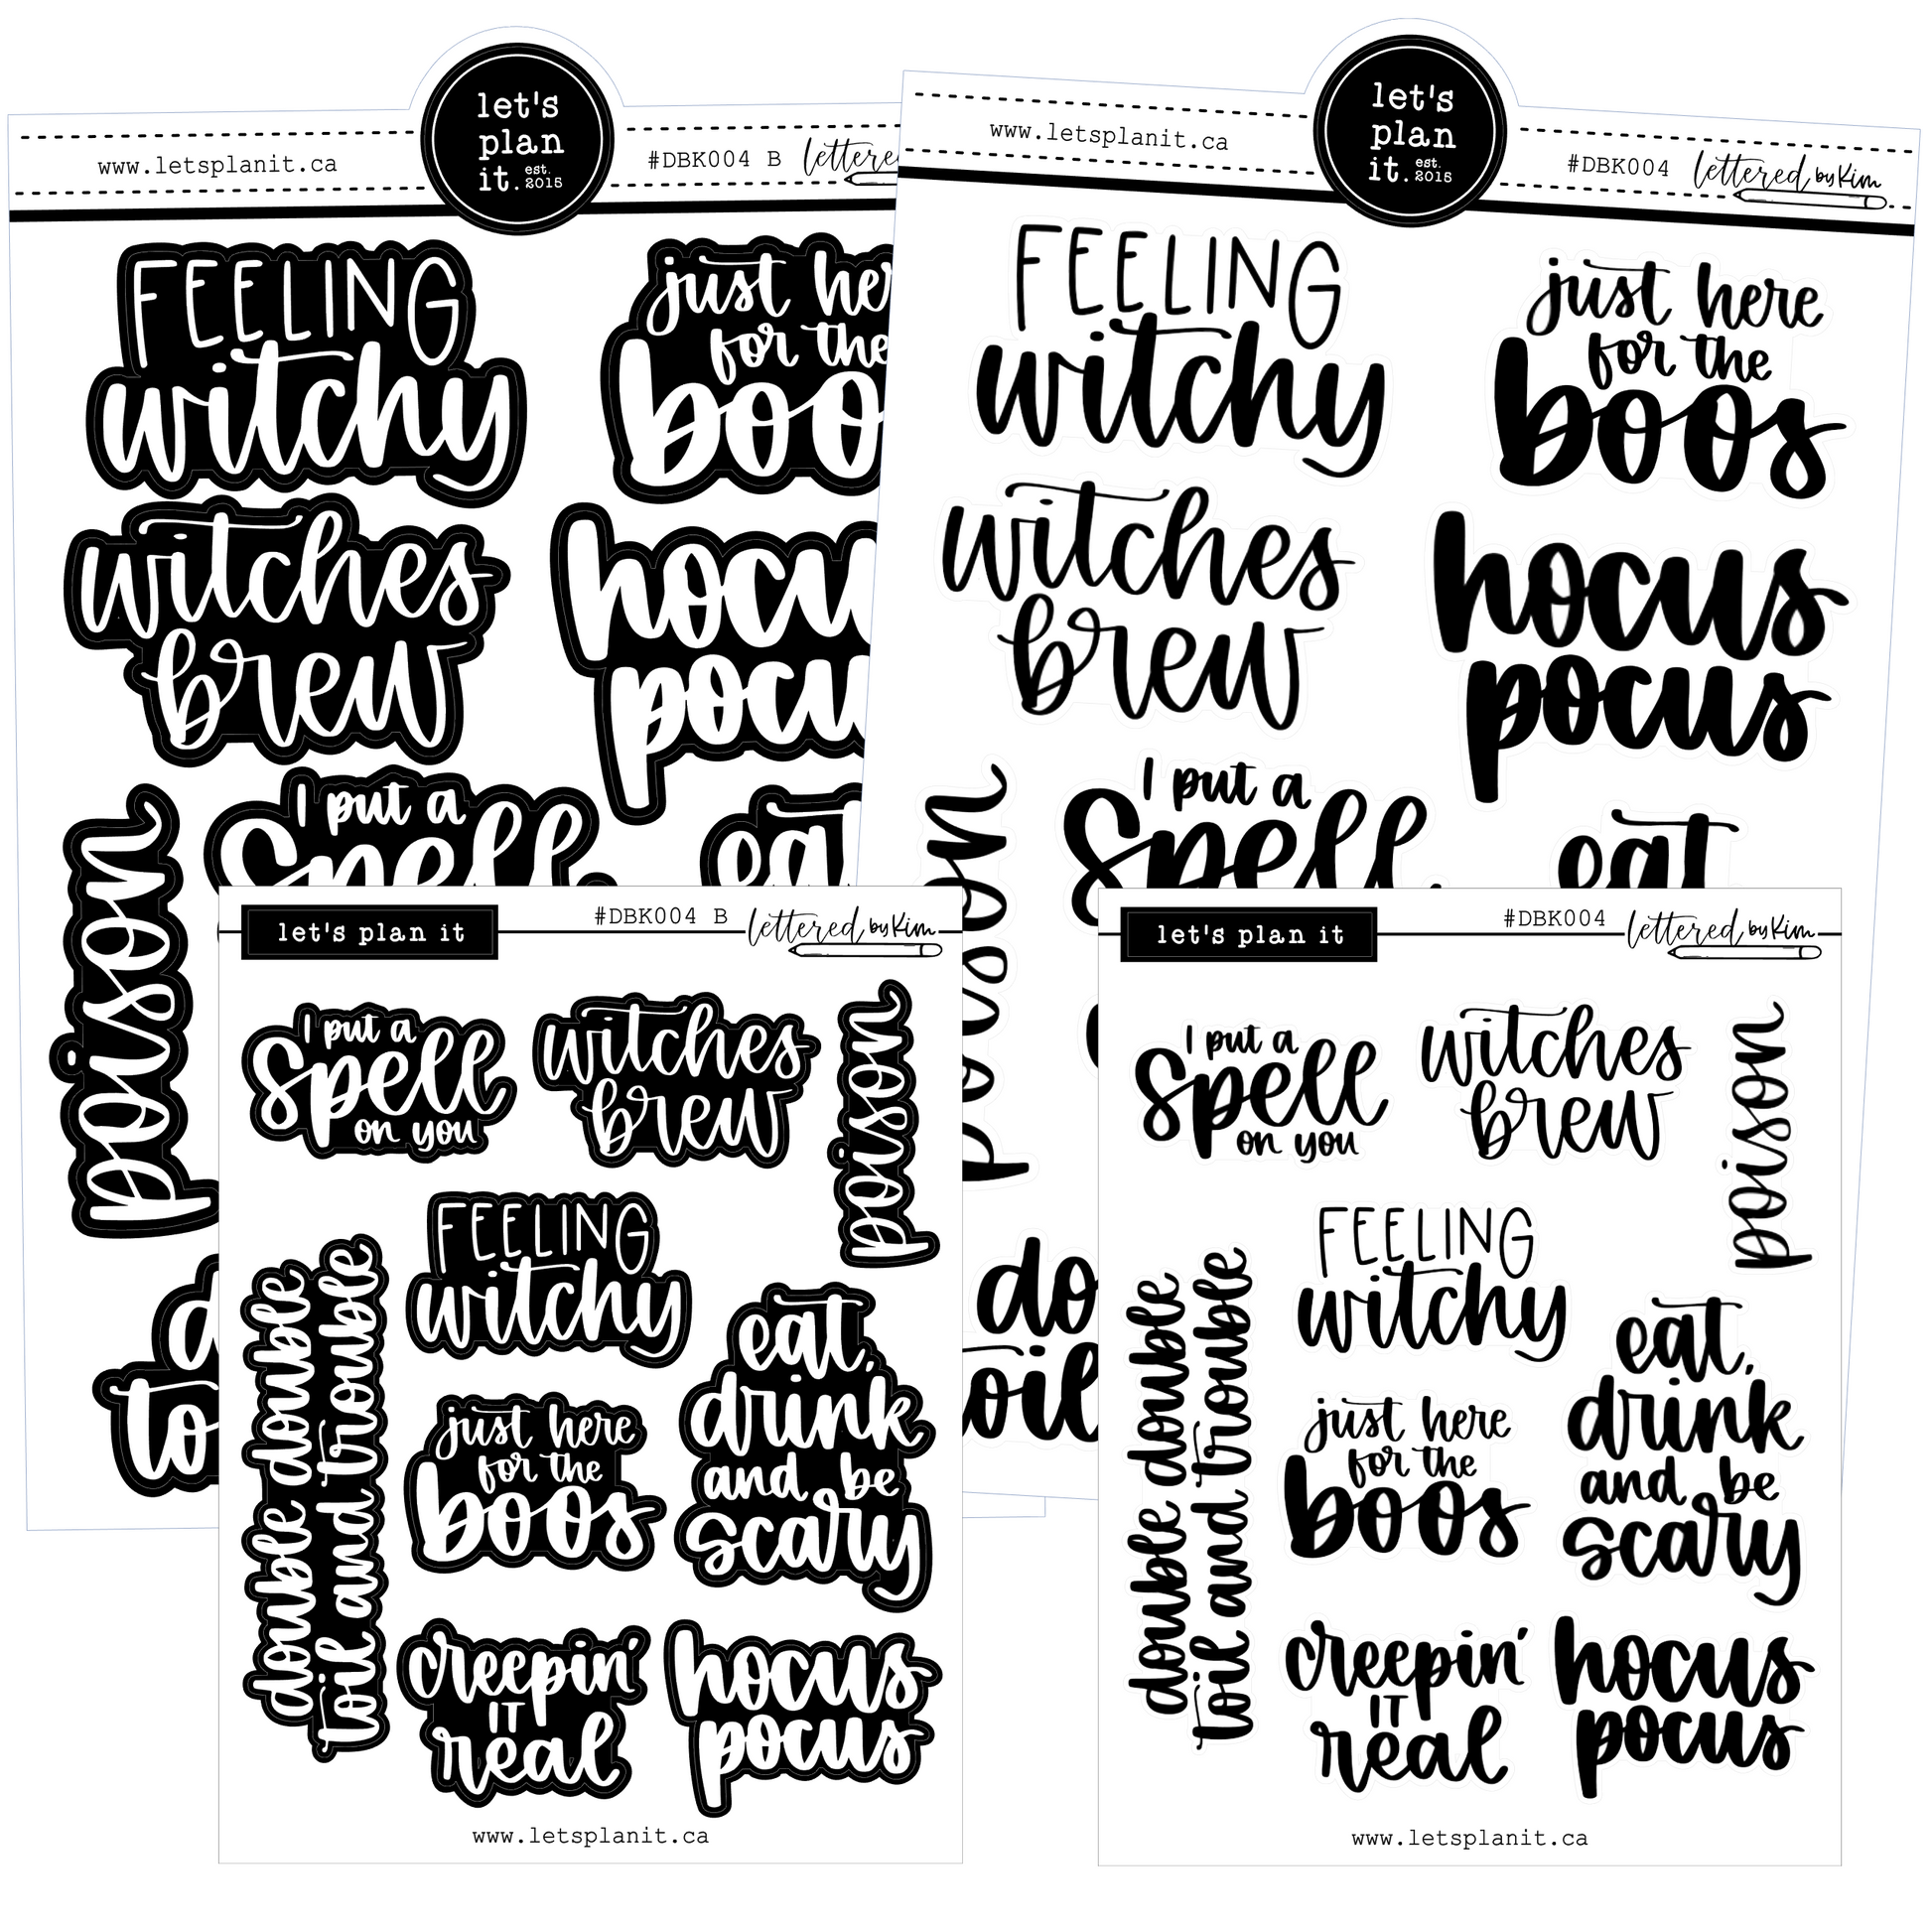 let's
plan
it. est. 2015
www.letsplanit.ca
#DBK004 B
lettered
FEELING
witchy
just he
for the
boo
witches
brew
hocu
pocu
poison
I put a
spell
eat
d
to
let's
plan
it. est. 2015
www.letsplanit.ca
#DBK004
lettered by Kim
FEELING
witchy
just here
for the
boos
witches
brew
hocus
pocus
poison
I put a
spell
eat
do
oil
let's plan it
#DBK004 B
lettered by Kim
I put a
spell
on you
witches
brew
poison
FEELING
witchy
double double
toil and trouble
just here
for the
boos
eat,
drink
and be
scary
creepin'
IT
real
hocus
pocus
www.letsplanit.ca
let's plan it
#DBK004
lettered by Kim
I put a
spell
on you
witches
brew
poison
FEELING
witchy
double double
toil and trouble
just here
for the
boos
eat,
drink
and be
scary
creepin'
IT
real
hocus
pocus
www.letsplanit.ca